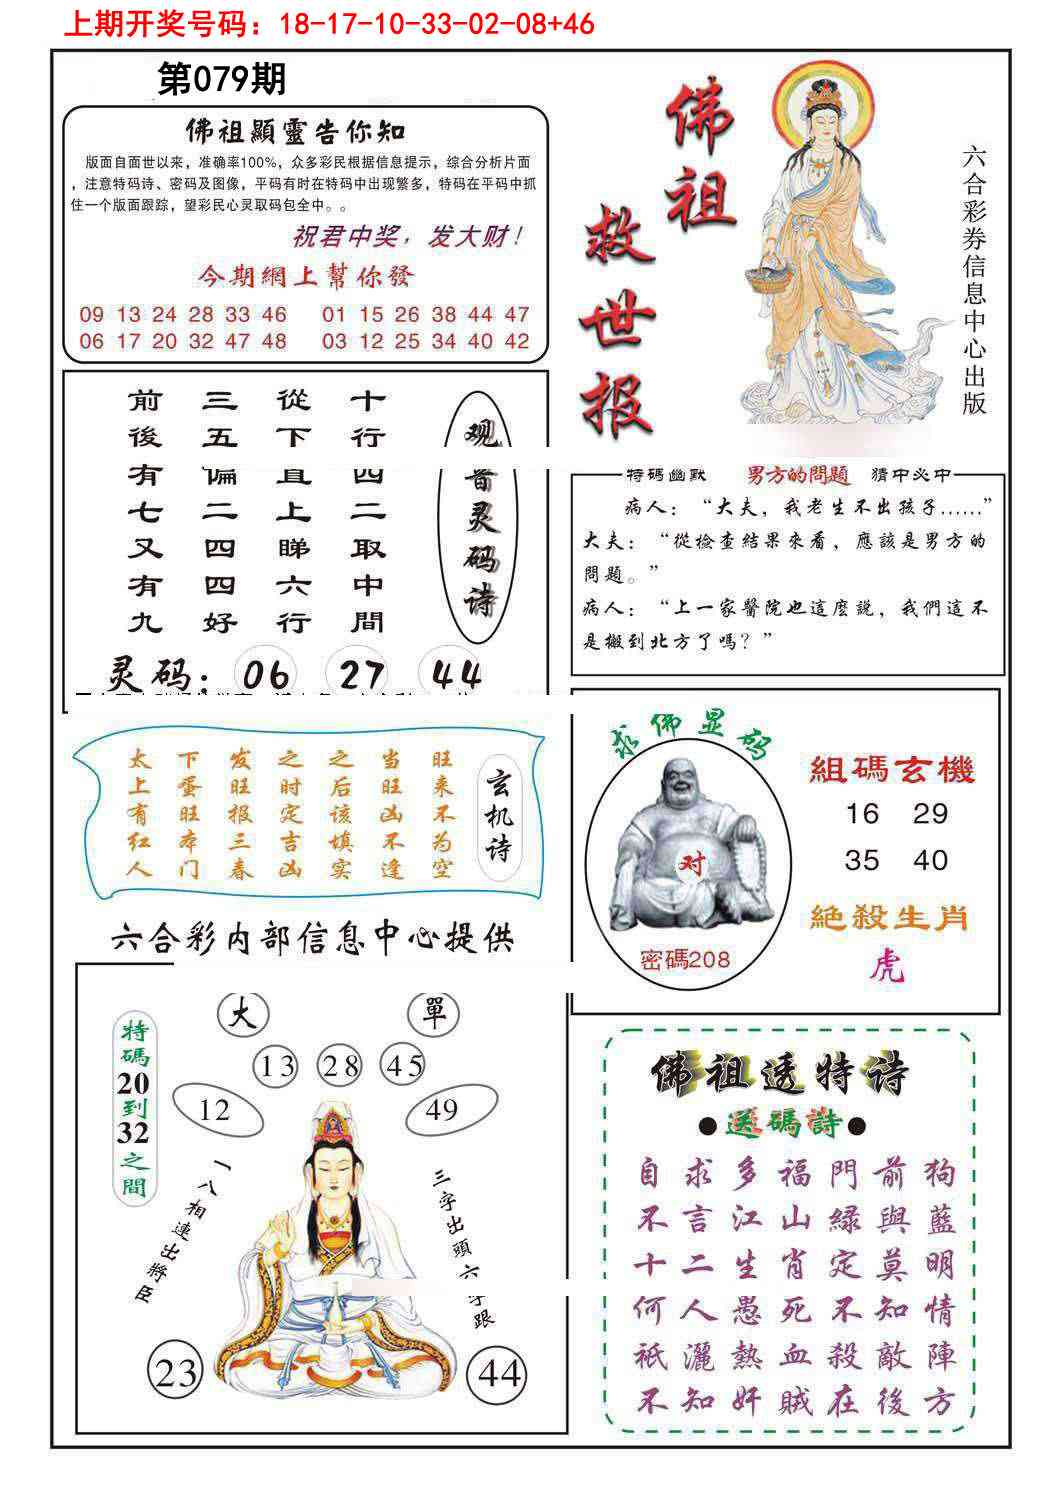 上期开奖号码：18-17-10-33-02-08+46
第079期
佛祖顯靈告你知
版面自面世以来，准确率100%，众多彩民根据信息提示，综合分析片面
，注意特码诗、密码及图像，平码有时在特码中出现繁多，特码在平码中抓
住一个版面跟踪，望彩民心灵取码包全中。。
祝君中奖，发大财！
今期網上幫你發
09 13 24 28 33 46 01 15 26 38 44 47
06 17 20 32 47 48 03 12 25 34 40 42
佛祖
救世报
六合彩券信息中心出版
观音灵码诗
十行四二取中間
從下直上睇六行
三五偏二四四好
前後有七又有九
灵码：06 27 44
特碼幽默 男方的問題 猜中必中
病人：“大夫，我老生不出孩子……”
大夫：“從檢查結果來看，應該是男方的
問題。”
病人：“上一家醫院也這麽説，我們這不
是搬到北方了嗎？”
玄机诗
旺来不为空
当旺凶不逢
之后该填实
之时定吉凶
发旺报三春
下蛋旺本门
太上有红人
六合彩内部信息中心提供
求佛显码
对
密碼208
組碼玄機
16 29
35 40
絕殺生肖
虎
特碼20到32之間
大 單
13 28 45
12 49
一八相連出將臣
三字出頭六字跟
23 44
佛祖透特诗
●送碼詩●
自求多福門前狗
不言江山緑與藍
十二生肖定莫明
何人愚死不知情
祇灑熱血殺敵陣
不知奸賊在後方